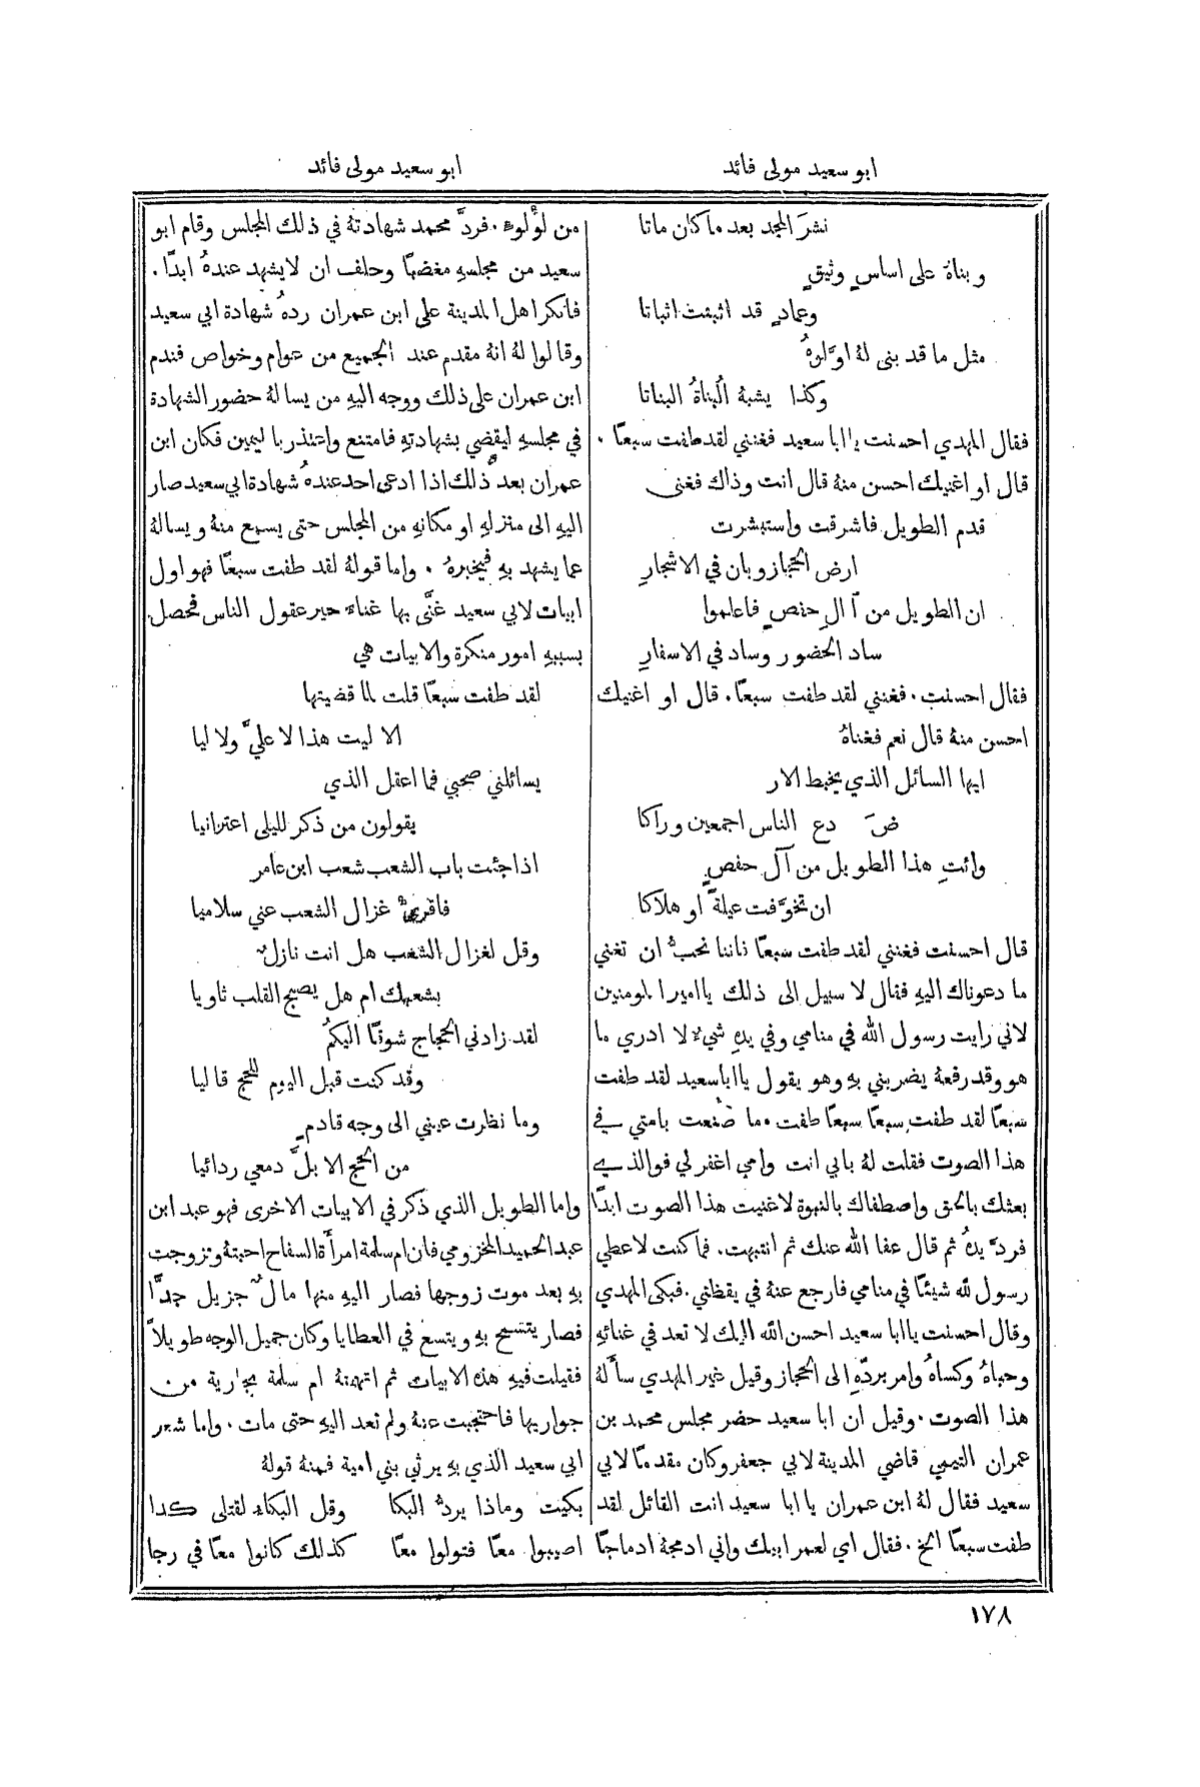 ابو سعيد مولى فائد
ابو سعيد مولى فائد
نشرَ المجد بعد ماكان ماتا
وبناهُ على اساسٍ وثيقٍ
وعمادٍ قد اثبتت اثباتا
مثل ما قد بنى لهُ اوَّلوهُ
وكذا يشبهُ البُناةُ البناتا
فقال المهدي احسنت يا ابا سعيد فغنني لقد طفت سبعًا .
قال او اغنيك احسن منهُ قال انت وذاك فغنى
قدم الطويل فاشرقت واستبشرت
ارض الحجاز وبان في الاشجارِ
ان الطويل من آلِ حفصٍ فاعلموا
ساد الحضور وساد في الاسفارِ
فقال احسنت . فغنني لقد طفت سبعًا . قال او اغنيك
احسن منهُ قال نعم فغناهُ
ايها السائل الذي يخبط الار
ضَ دع الناس اجمعين وراكا
وائتِ هذا الطويل من آل حفصٍ
ان تخوَّفت عيلةً او هلاكا
قال احسنت فغنني لقد طفت سبعًا فاننا نحبُّ ان تغني
ما دعوناك اليهِ فقال لا سبيل الى ذلك يا امير المومنين
لاني رايت رسول الله في منامي وفي يدهِ شيءٌ لا ادري ما
هو وقد رفعهُ يضربني بهِ وهو يقول يا ابا سعيد لقد طفت
سبعًا لقد طفت سبعًا سبعًا طفت . ما صنعت بامتي في
هذا الصوت فقلت لهُ بابي انت وامي اغفر لي فوالذي
بعثك بالحق واصطفاك بالنبوة لا غنيت هذا الصوت ابدًا
فردَّ يدهُ ثم قال عفا الله عنك ثم انتبهت . فما كنت لاعطي
رسول لله شيئًا في منامي فارجع عنهُ في يقظتي . فبكى المهدي
وقال احسنت يا ابا سعيد احسن الله اليك لا تعد في غنائهِ
وحباهُ وكساهُ وامر بردّهِ الى الحجاز وقيل غير المهدي سألهُ
هذا الصوت . وقيل ان ابا سعيد حضر مجلس محمد بن
عمران التيمي قاضي المدينة لابي جعفر وكان مقدمًا لابي
سعيد فقال لهُ ابن عمران يا ابا سعيد انت القائل لقد
طفت سبعًا الخ . فقال اي لعمر ابيك واني ادمجهُ ادماجًا
من لؤلوء . فردَّ محمد شهادتهُ في ذلك المجلس وقام ابو
سعيد من مجلسهِ مغضبًا وحلف ان لا يشهد عندهُ ابدًا .
فانكر اهل المدينة على ابن عمران ردهُ شهادة ابي سعيد
وقالوا لهُ انهُ مقدم عند الجميع من عوام وخواص فندم
ابن عمران على ذلك ووجه اليهِ من يسالهُ حضور الشهادة
في مجلسهِ ليقضي بشهادتهِ فامتنع واعتذر باليمين فكان ابن
عمران بعد ذلك اذا ادعى احد عندهُ شهادة ابي سعيد صار
اليهِ الى منزلهِ او مكانهِ من المجلس حتى يسمع منهُ ويسالهُ
عما يشهد بهِ فيخبرهُ . واما قولهُ لقد طفت سبعًا فهو اول
ابيات لابي سعيد غنَّى بها غناءً حير عقول الناس فحصل
بسببهِ امور منكرة والابيات هي
لقد طفت سبعًا قلت لما قضيتها
الا ليت هذا لا عليَّ ولا ليا
يسائلني صحبي فما اعقل الذي
يقولون من ذكر لليلى اعترانيا
اذا جئت باب الشعب شعب ابن عامر
فاقرئْ غزال الشعب عني سلاميا
وقل لغزال الشعب هل انت نازلٌ
بشعبك ام هل يصبح القلب ثاويا
لقد زادني الحجاج شوقًا اليكمُ
وقد كنت قبل اليوم للحج قاليا
وما نظرت عيني الى وجه قادمٍ
من الحج الا بلَّ دمعي ردائيا
واما الطويل الذي ذكر في الابيات الاخرى فهو عبد ابن
عبد الحميد المخزومي فان ام سلمة امرأة السفاح احبتهُ وتزوجت
بهِ بعد موت زوجها فصار اليهِ منها مالٌ جزيل جدًّا
فصار يتسح بهِ ويتسع في العطايا وكان جميل الوجه طويلاً
فقيلت فيهِ هذه الابيات ثم اتهمتهُ ام سلمة بجارية من
جواريها فاحتجبت عنهُ ولم تعد اليهِ حتى مات . واما شعر
ابي سعيد الذي بهِ يرثي بني امية فمنهُ قولهُ
بكيت وماذا يردُّ البكا وقل البكاء لقتلى كدا
اصيبوا معًا فتولوا معًا كذلك كانوا معًا في رجا
١٧٨